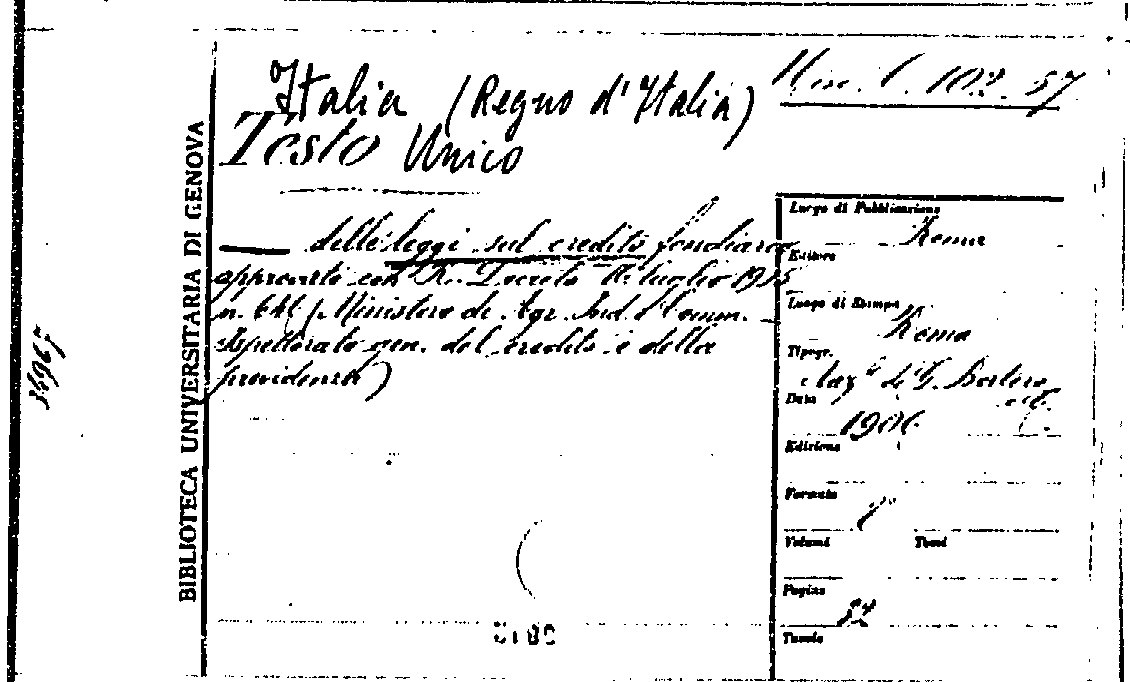 Italia (Regno d'Italia)
Testo Unico
delle leggi sul credito fondiario
approvate con R. Decreto luglio
n. 646 (Ministero di Agr. Ind. e Comm.
Ispettorato gen. del credito e della
previdenza)
BIBLIOTECA UNIVERSITARIA DI GENOVA
34967
Luogo di Pubblicazione
Roma
Editore
Luogo di Stampa
Roma
Tipogr.
G. Bertero
Data
1906
Edizione
Formato
Volumi Tomi
Pagine
Tavole